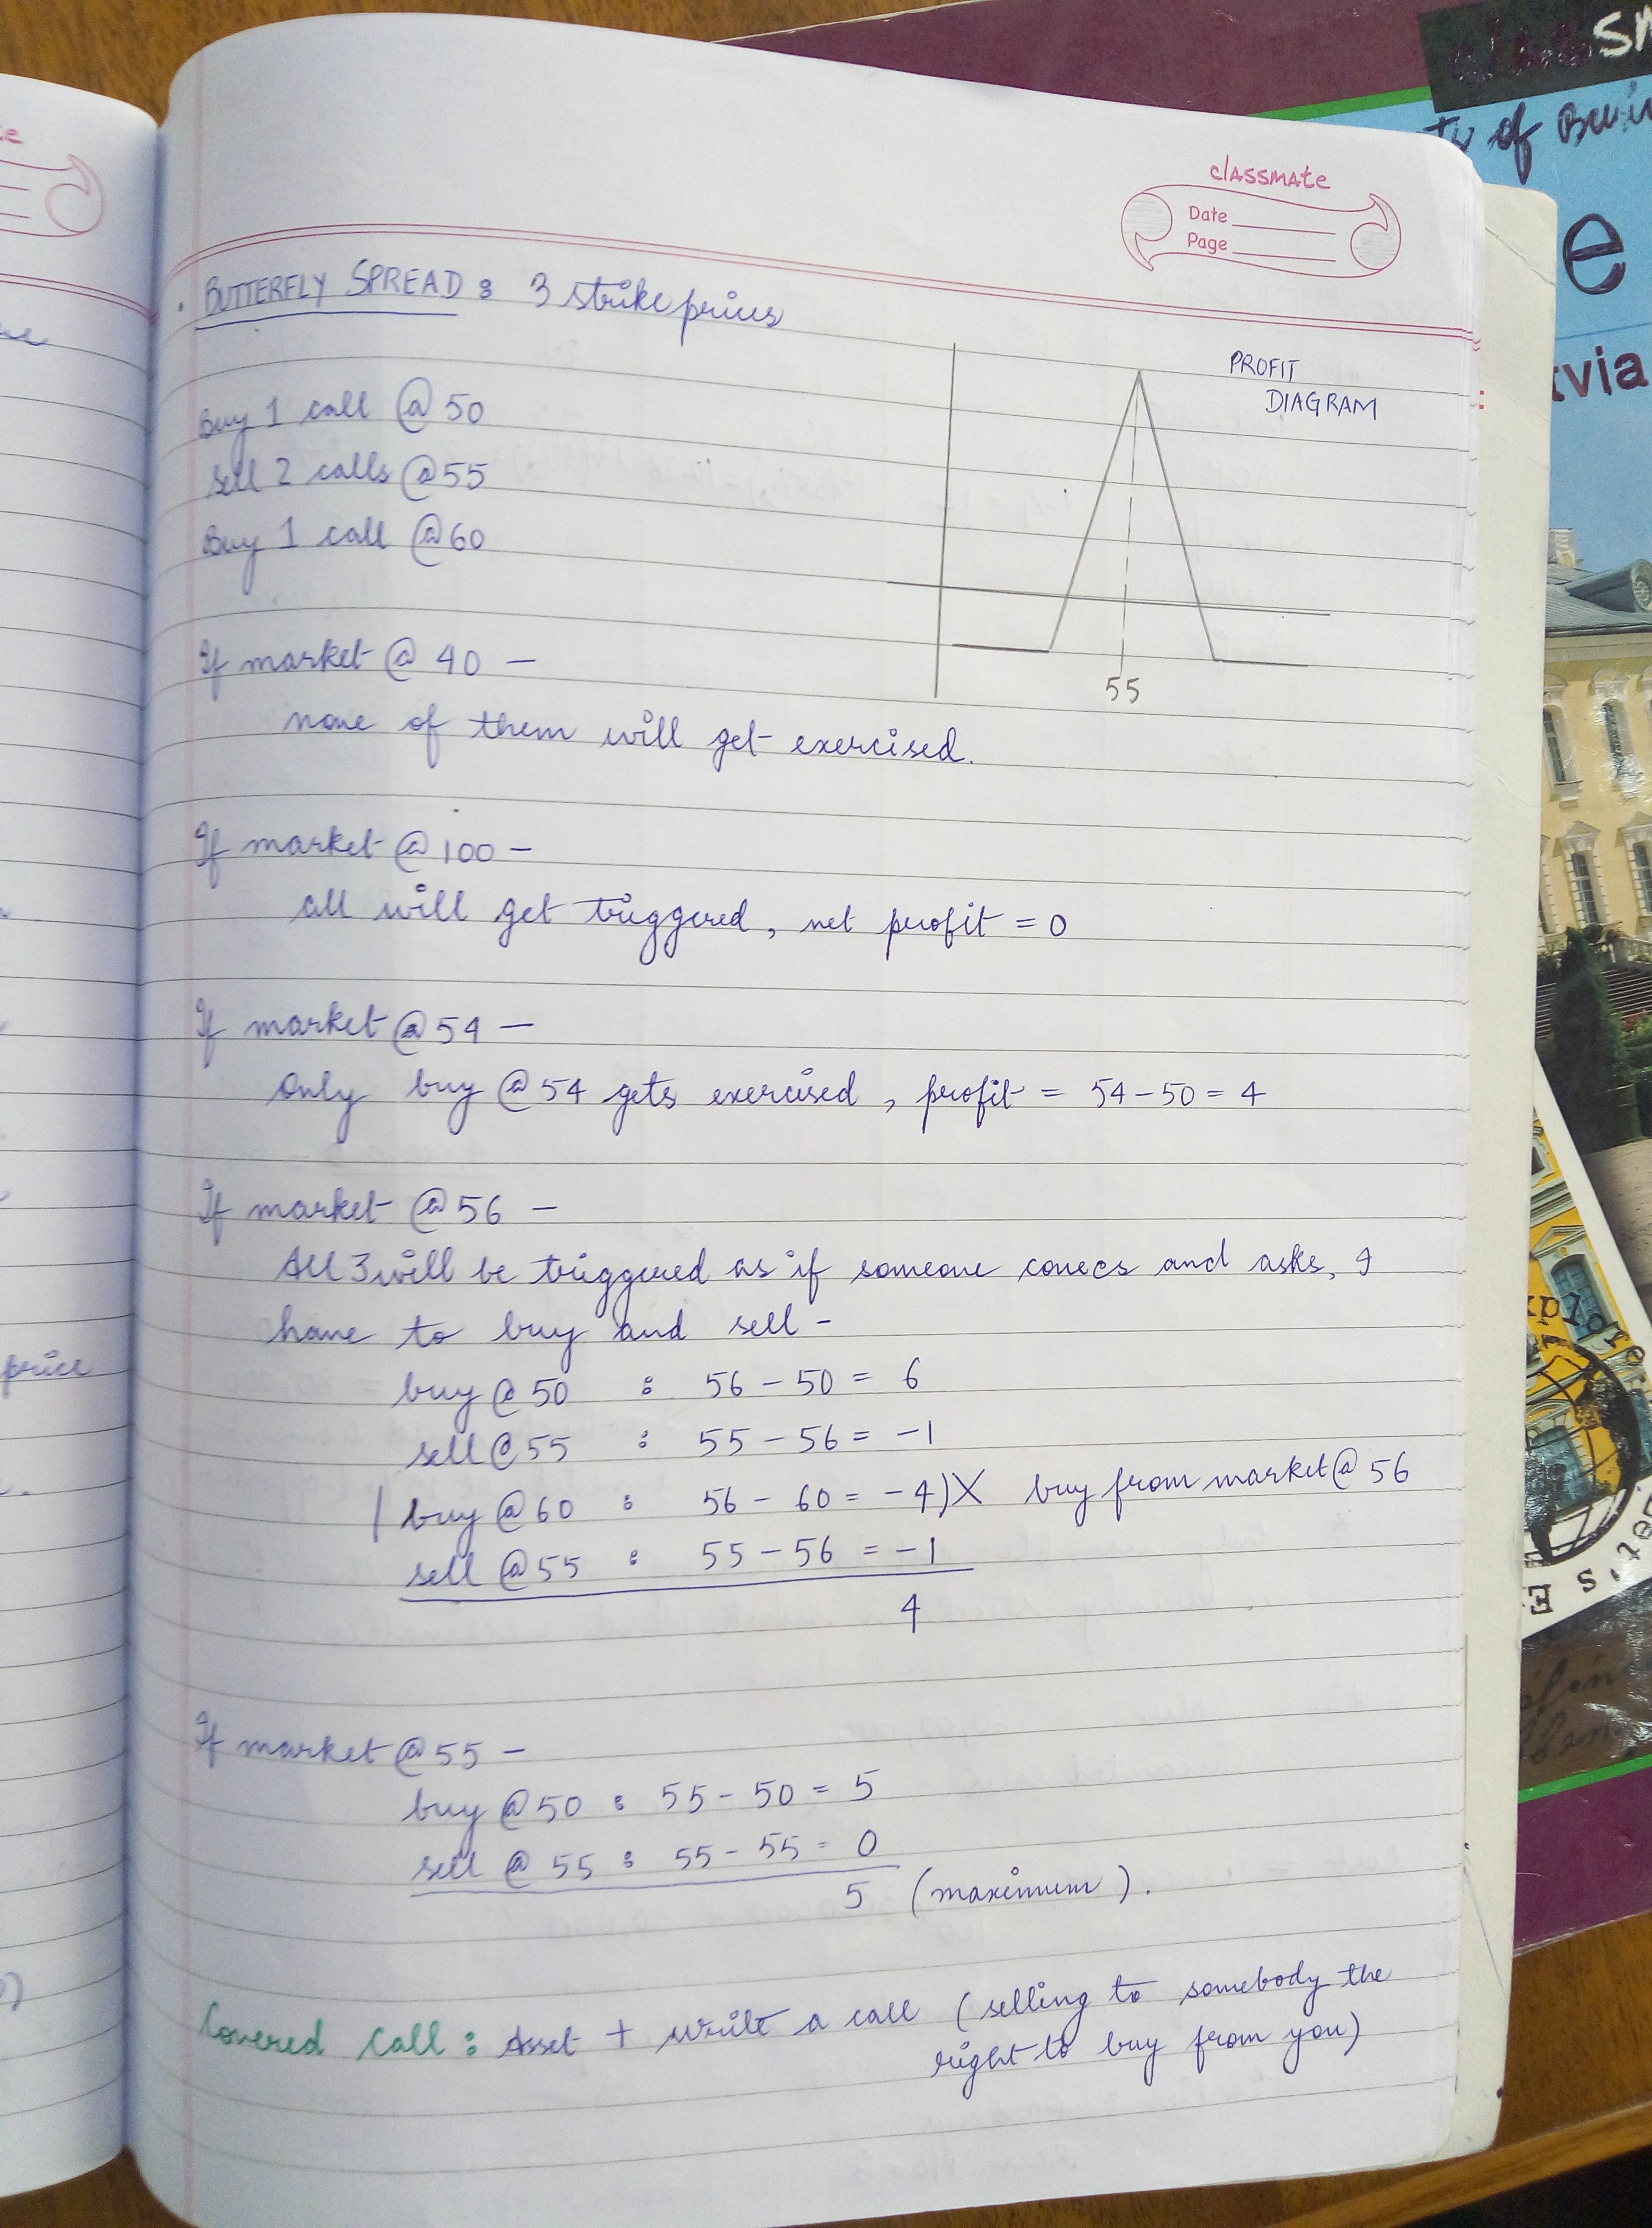 classmate
Date
Page
BUTTERFLY SPREAD : 3 strike prices
PROFIT
DIAGRAM
Buy 1 call @ 50
sell 2 calls @ 55
Buy 1 call @ 60
55
If market @ 40 –
none of them will get exercised.
If market @ 100 –
all will get triggered, net profit = 0
If market @ 54 –
Only buy @ 54 gets exercised, profit = 54 – 50 = 4
If market @ 56 –
All 3 will be triggered as if someone comes and asks, I
have to buy and sell –
buy @ 50 : 56 – 50 = 6
sell @ 55 : 55 – 56 = –1
( buy @ 60 : 56 – 60 = –4) X buy from market @ 56
sell @ 55 : 55 – 56 = –1
4
If market @ 55 –
buy @ 50 : 55 – 50 = 5
sell @ 55 : 55 – 55 = 0
5 (maximum).
Covered Call : Asset + write a call (selling to somebody the
right to buy from you)
price
of
e
tvia